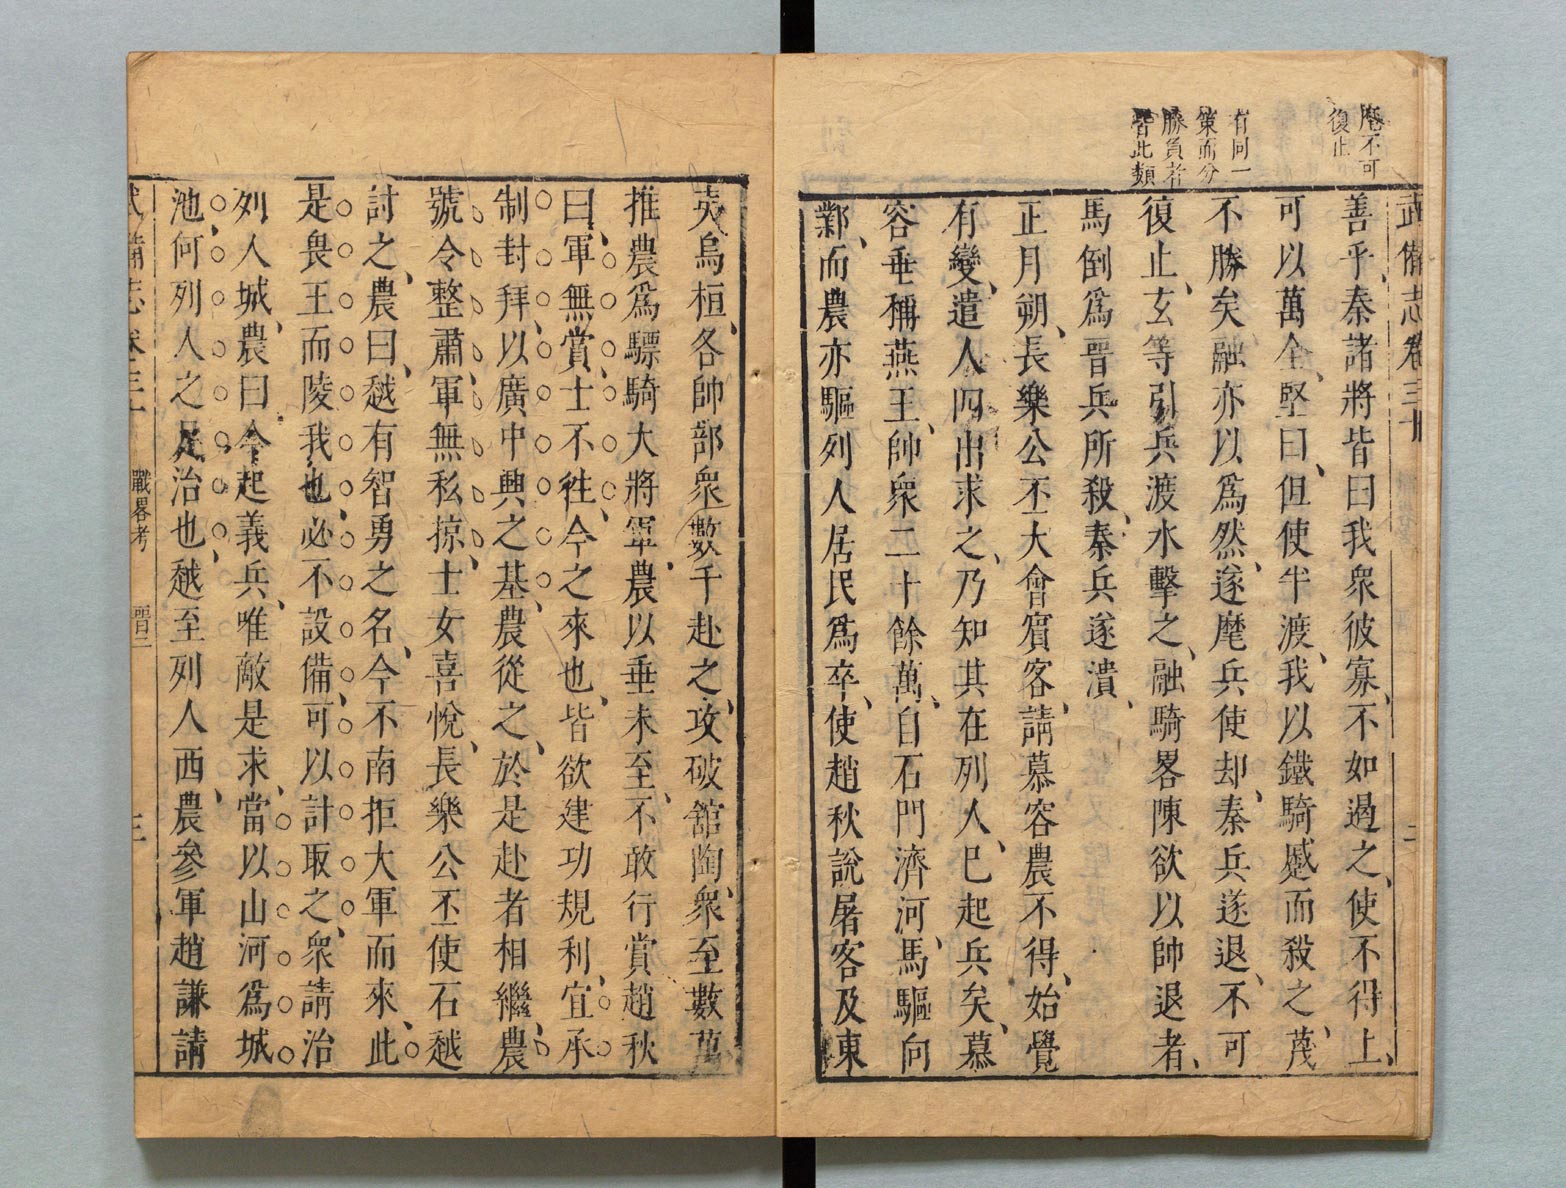 武備志卷三十
二
麾不可
復止
有同一
策而分
勝負者
皆此類
善乎秦諸將皆曰我衆彼寡不如遏之使不得上
可以萬全堅曰但使半渡我以鐵騎蹙而殺之蔑
不勝矣融亦以爲然遂麾兵使却秦兵遂退不可
復止玄等引兵渡水擊之融騎畧陳欲以帥退者
馬倒爲晋兵所殺秦兵遂潰
正月朔長樂公丕大會賓客請慕容農不得始覺
有變遣人四出求之乃知其在列人已起兵矣慕
容垂稱燕王帥衆二十餘萬自石門濟河馬驅向
鄴而農亦驅列人居民爲卒使趙秋說屠各及東
夷烏桓各帥部衆數千赴之攻破舘陶衆至數萬
推農爲驃騎大將軍農以垂未至不敢行賞趙秋
曰軍無賞士不徃今之來也皆欲建功規利宜承
制封拜以廣中興之基農從之於是赴者相繼農
號令整肅軍無私掠士女喜悅長樂公丕使石越
討之農曰越有智勇之名今不南拒大軍而來此
是畏王而陵我也必不設備可以計取之衆請治
列人城農曰今起義兵唯敵是求當以山河爲城
池何列人之足治也越至列人西農參軍趙謙請
武備志卷三十
戰畧考
晋二
三